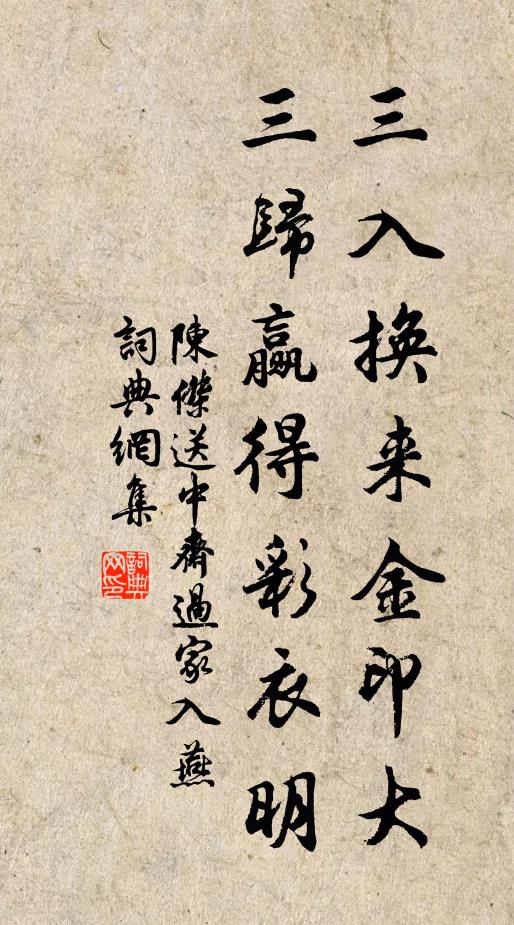 三入換来金印大
三歸贏得彩衣明
陳傑送中齋過家入燕
詞典網集
詞典網印